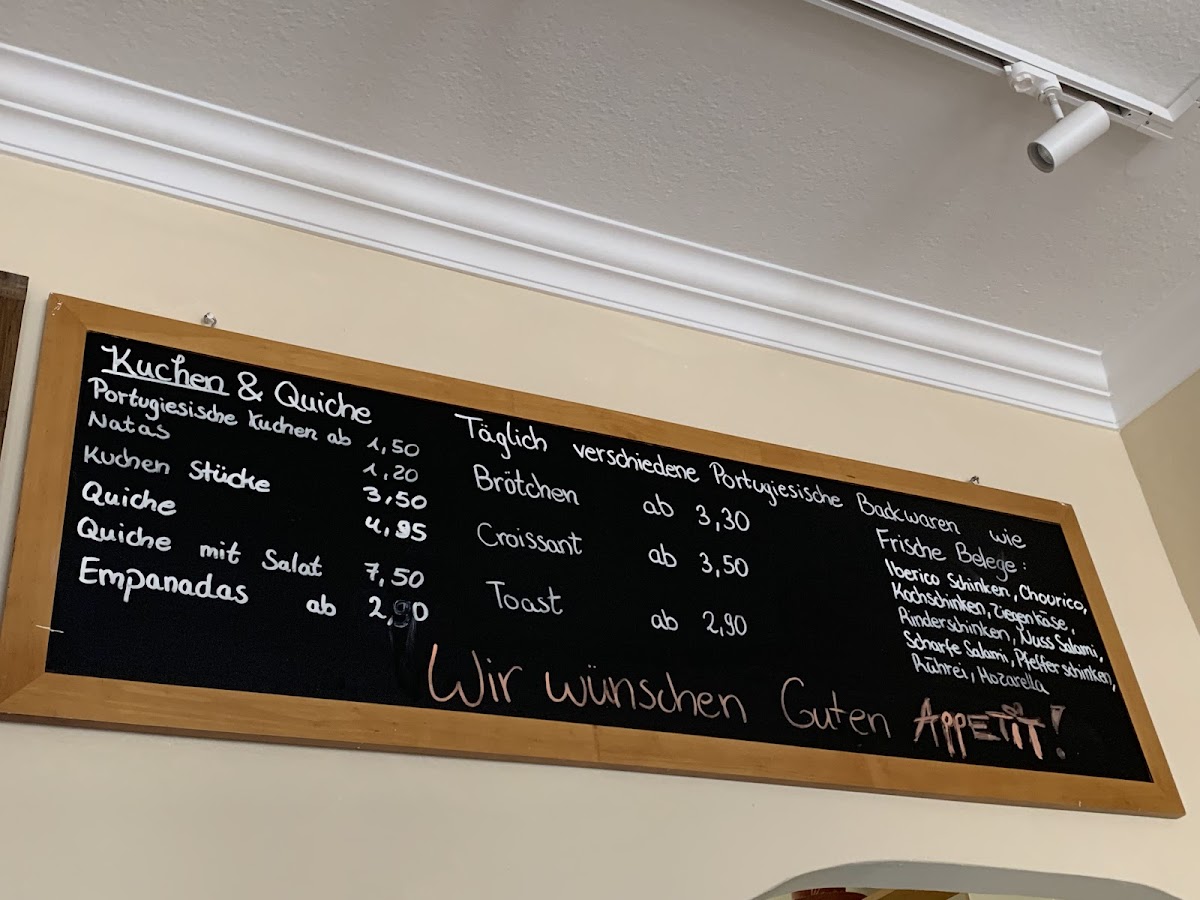 Kuchen & Quiche
Portugiesische Kuchen ab 1,50
Natas 1,20
Kuchen Stücke 3,50
Quiche 4,95
Quiche mit Salat 7,50
Empanadas ab 2,90
Täglich verschiedene Portugiesische Backwaren wie
Brötchen ab 3,30
Croissant ab 3,50
Toast ab 2,90
Frische Belege:
Iberico Schinken, Chourico,
Kochschinken, Ziegenkäse,
Rinderschinken, Nuss Salami,
Scharfe Salami, Pfefferschinken,
Rührei, Mozarella
Wir wünschen Guten APPETIT!